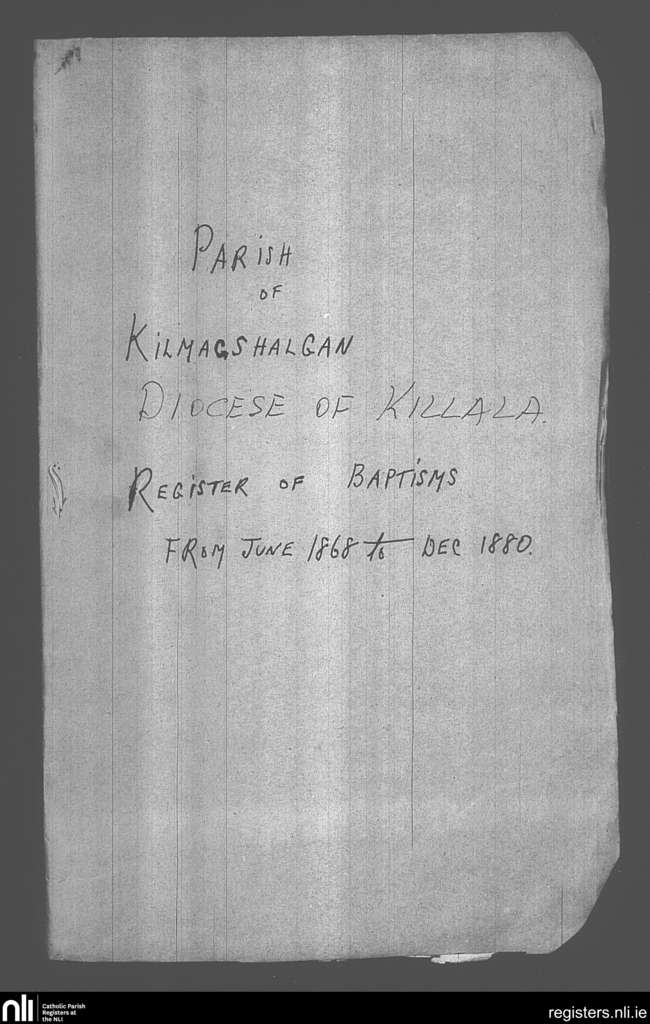 PARISH
OF
KILMACSHALGAN
DIOCESE OF KILLALA.
REGISTER OF BAPTISMS
FROM JUNE 1868 to DEC 1880.
nli
Catholic Parish
Registers at
the NLI
registers.nli.ie